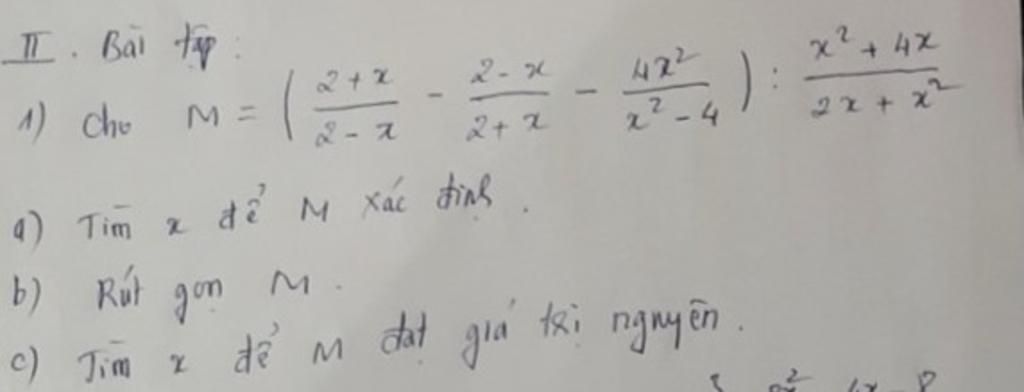 II. Bài tập:
1) Cho M = ( (2 + x)/(2 - x) - (2 - x)/(2 + x) - 4x²/(x² - 4) ) : (x² + 4x)/(2x + x²)
a) Tìm x để M xác định.
b) Rút gọn M.
c) Tìm x để M đạt giá trị nguyên.